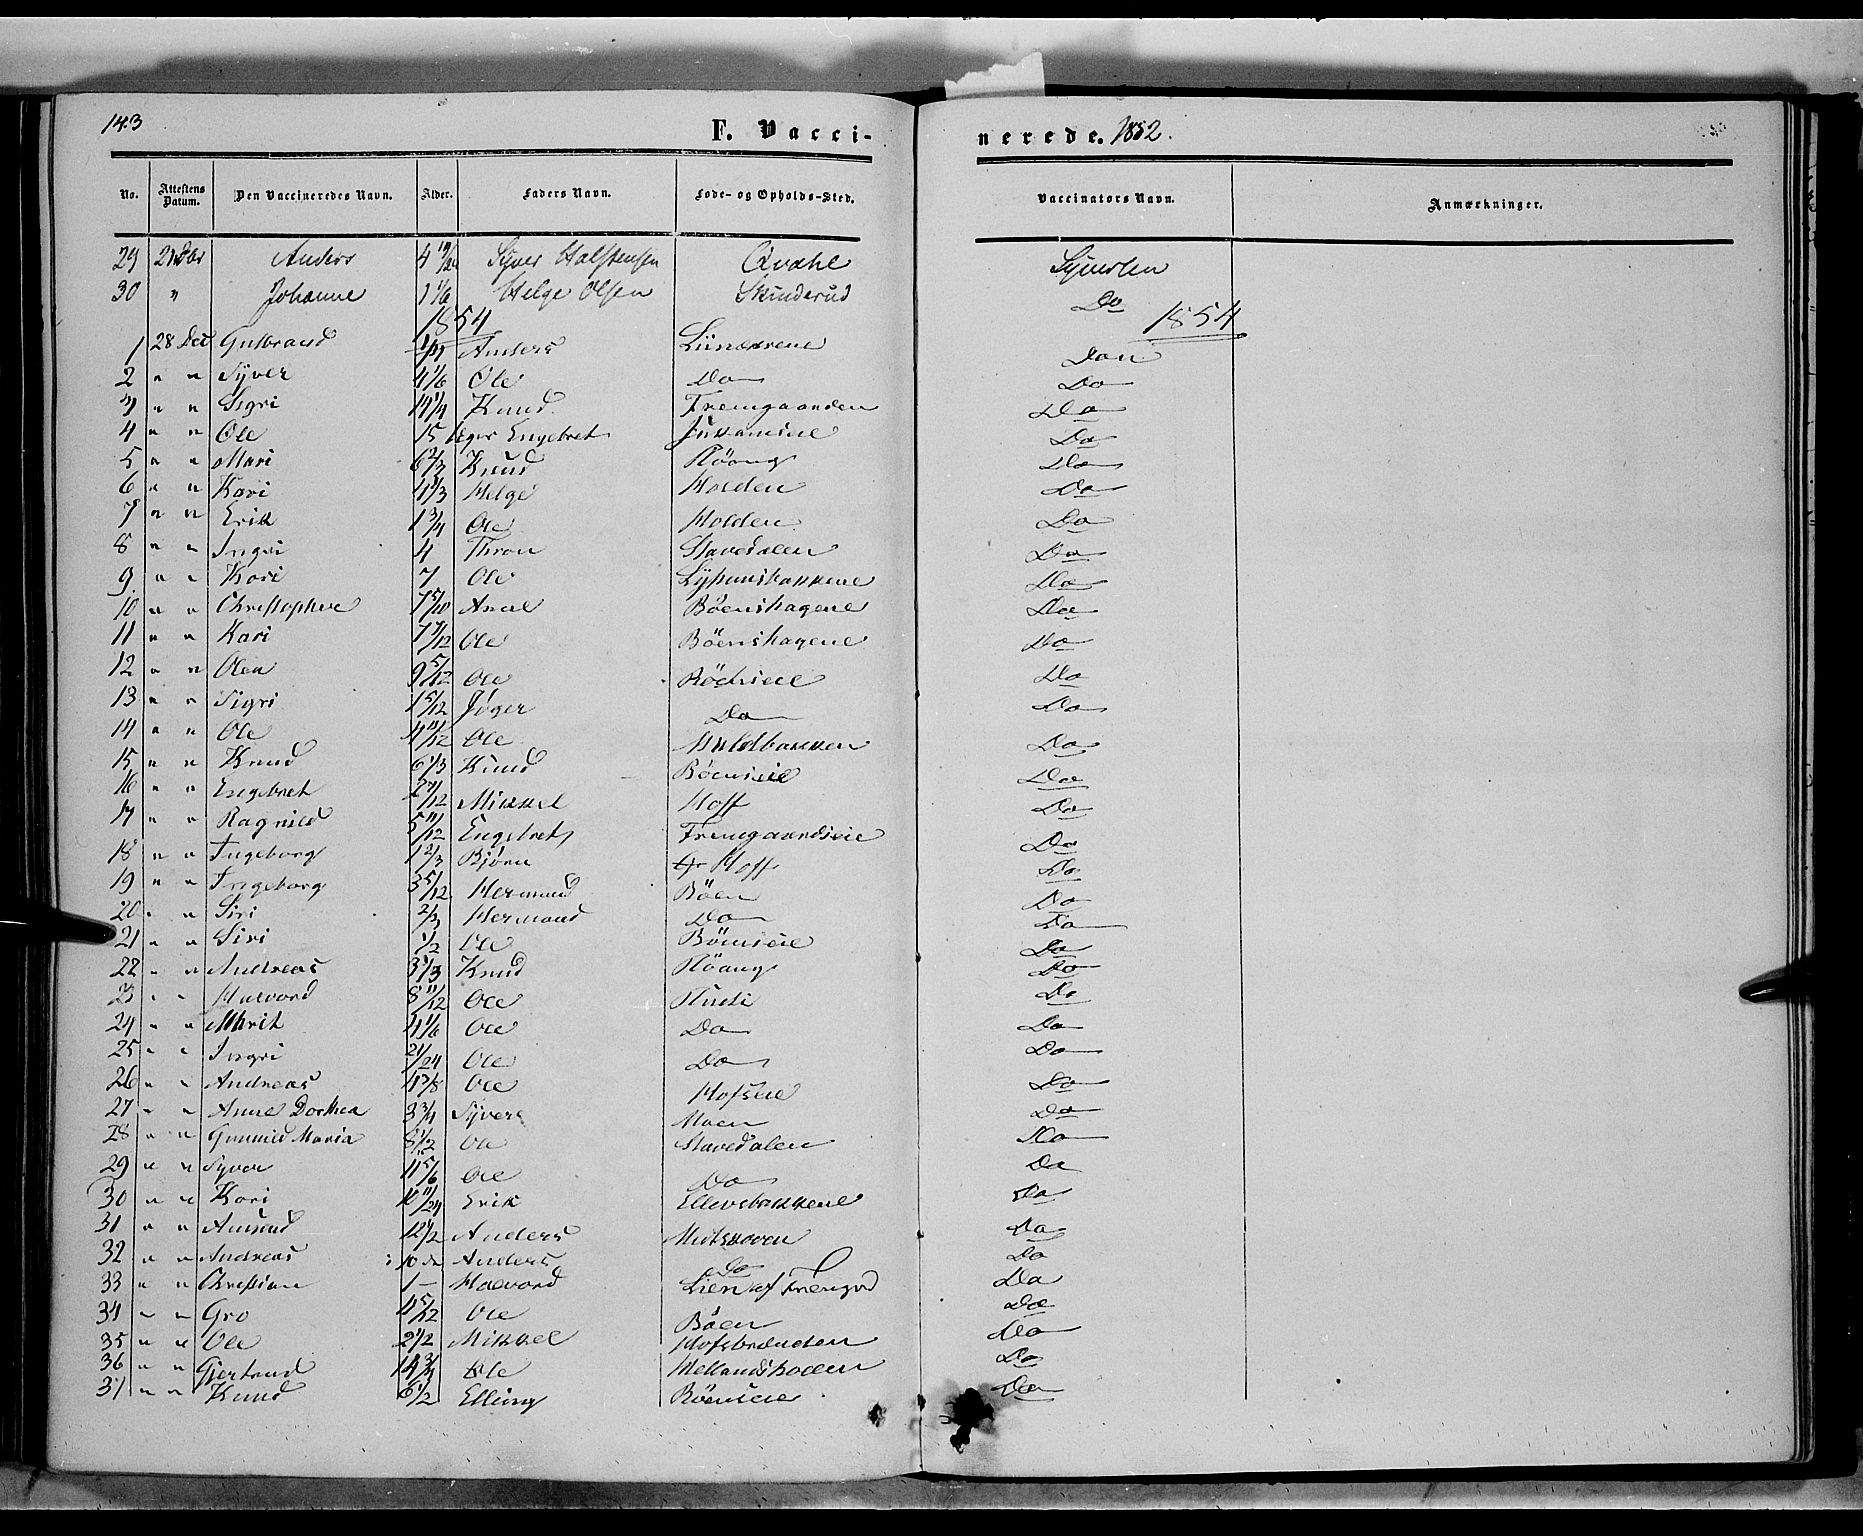 143
F. Vacci-
nerede. 1852.
No. Attestens Datum. Den Vaccineredes Navn. Alder. Faders Navn. Føde- og Opholds-Sted. Vaccinators Navn. Anmærkninger.
29 21 Anders 4 Syver Halstensen Qvahle
30 " Johanne 1 1/6 Helge Olsen Skinderud Do
1854 1854
1 28 Dec Gulbrand Anders
2 " " Syver 4 1/6 Ole Do Do
3 " " Sigri 14 1/4 Knud Fremgaarden Do
4 " " Ole 15 Engebret Do
5 " " Mari 6 2/3 Knud Røang Do
6 " " Kari 4 1/3 Helge Holden Do
7 " " Erik 1 3/4 Ole Holden Do
8 " " Ingri 4 Thron Stavedalen Do
9 " " Kari 7 Ole Do
10 " " Christopher Arne Böenshagene Do
11 " " Kari 7 7/12 Ole Böenshagene Do
12 " " Olea 9 5/12 Ole Do
13 " " Sigri 1 5/12 Do Do
14 " " Ole 4 11/12 Ole Do
15 " " Knud 6 1/3 Knud Böenseie Do
16 " " Engebret 2 7/12 Mikkel Hoff Do
17 " " Ragnild 5 11/12 Engebret Fremgaardseie Do
18 " " Ingeborg 1 2/3 Bjørn Hoff Do
19 " " Ingeborg 3 5/12 Hermand Böen Do
20 " " Siri 2/3 Hermand Do Do
21 " " Siri 1/2 Ole Böenseie Do
22 " " Andreas 3 1/3 Knud Røang Do
23 " " Halvord 8 11/12 Ole Do
24 " " Marit 4 1/6 Ole Do Do
25 " " Ingri 21/24 Ole Do Do
26 " " Andreas 4 3/8 Ole Hofseie Do
27 " " Anne Dorthea 3 3/4 Syver Moen Do
28 " " Gunnild Maria 8 1/2 Ole Stavedalen Do
29 " " Syver 4 5/6 Ole Do Do
30 " " Kari 10 11/24 Erik Ellevsbakkene Do
31 " " Amund 12 1/2 Anders Do
32 " " Andreas 10 Anders Do Do
33 " " Christian 1 — Halvord Lien af Do
34 " " Gro 4 5/12 Ole Böen Do
35 " " Ole 2 1/2 Mikkel Hofsbraaten Do
36 " " Gjertrud 14 3/4 Ole Do
37 " " Knud 6 1/2 Elling Böenseie Do